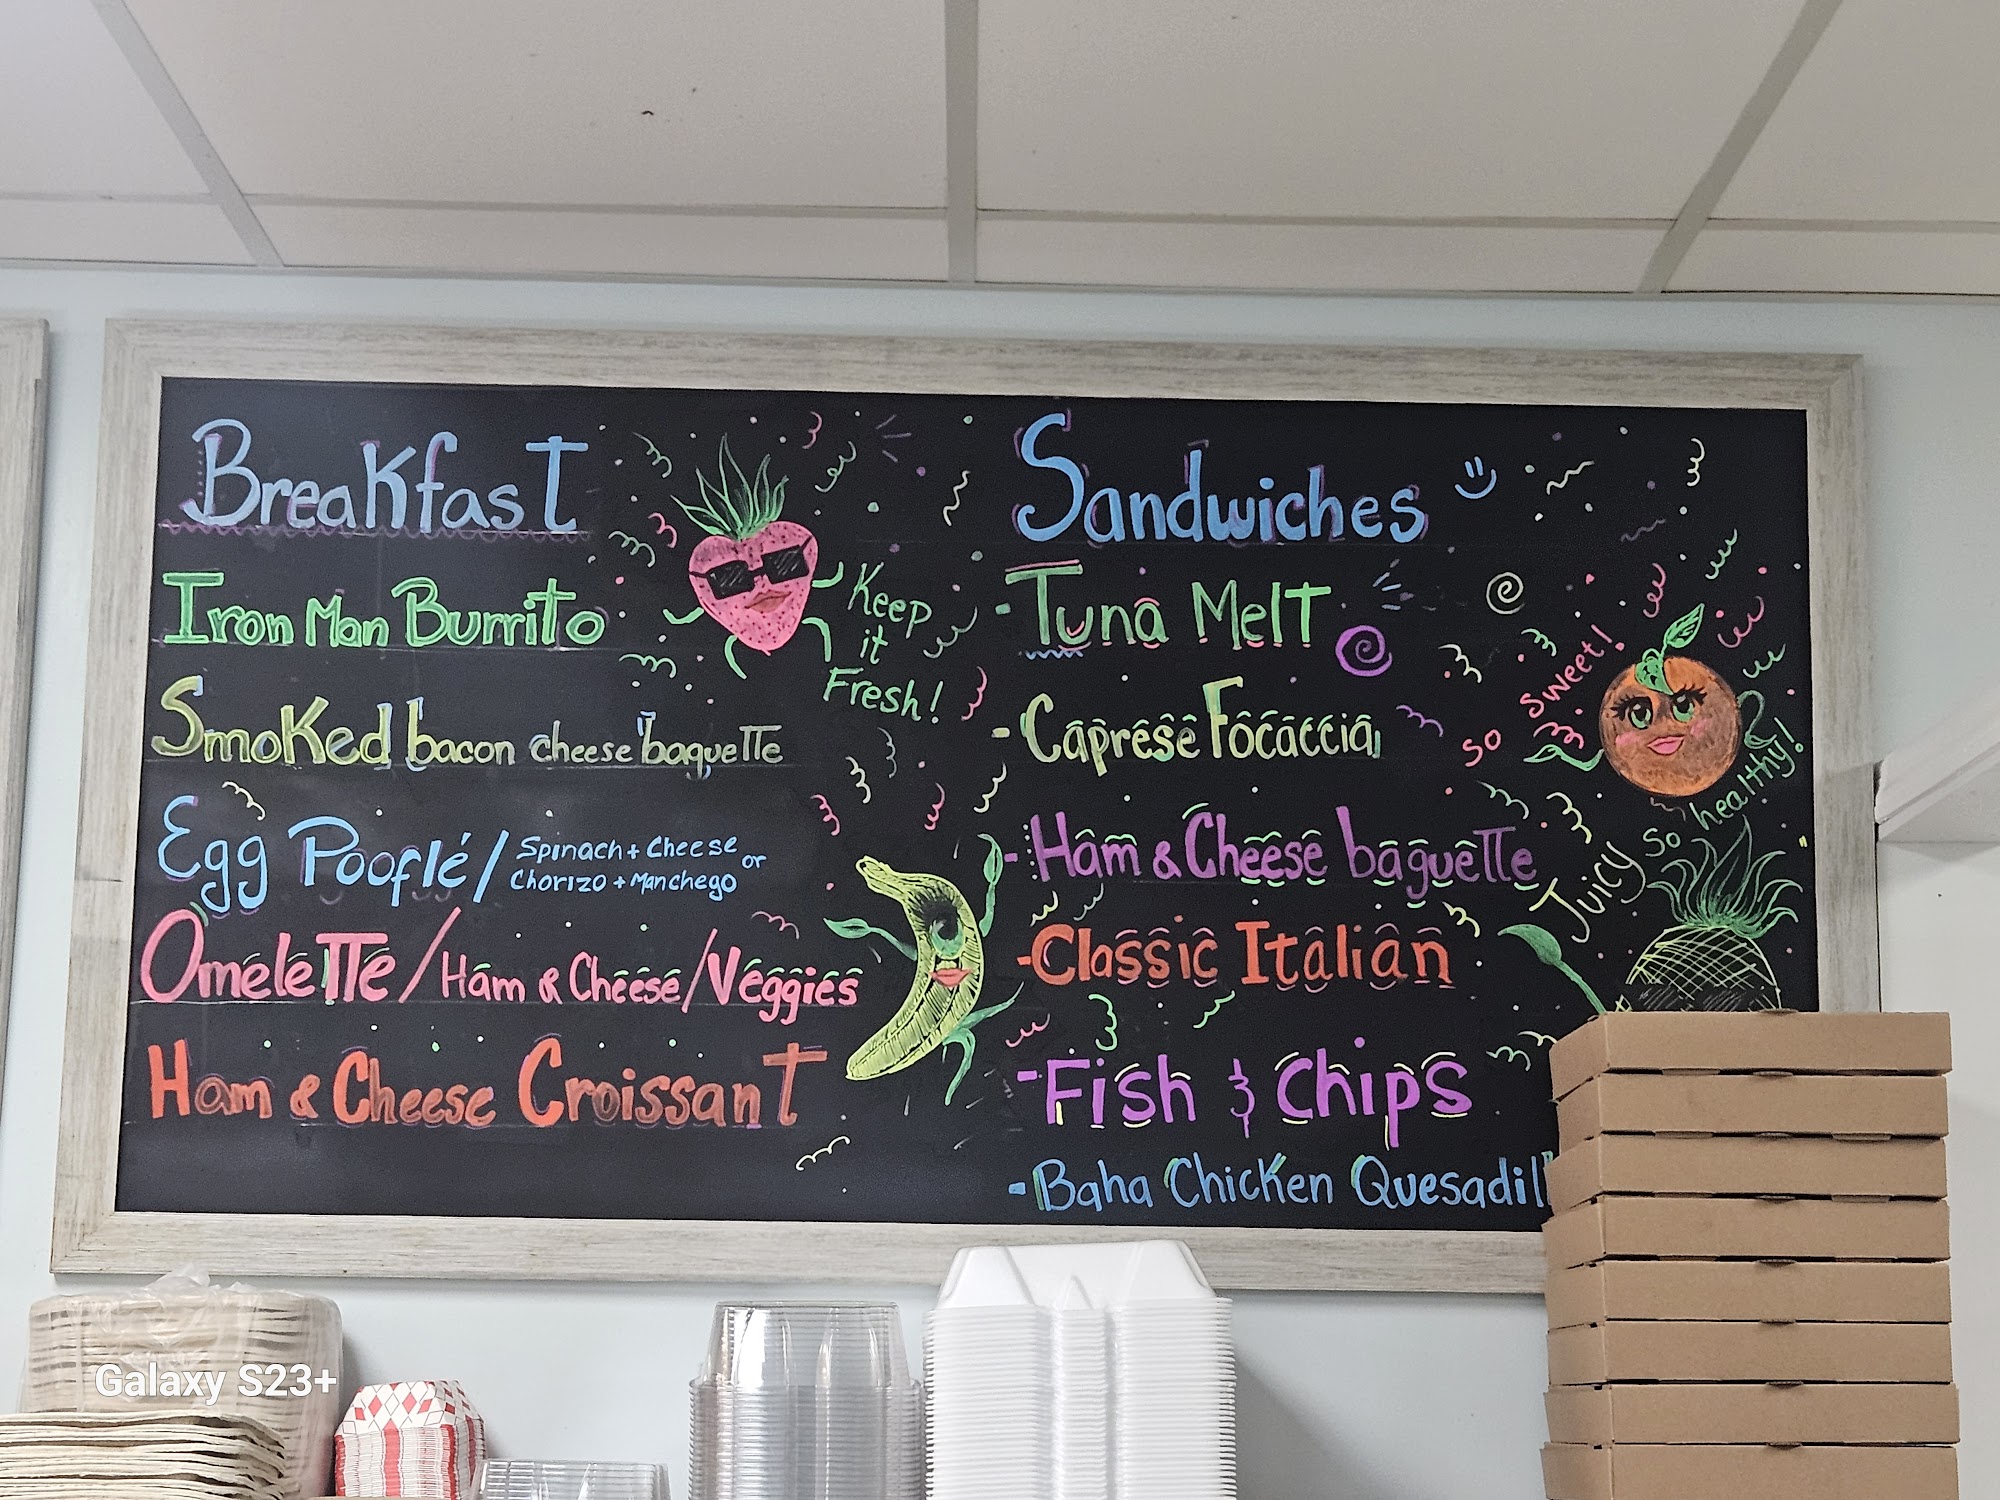 Breakfast
Iron Man Burrito
Smoked bacon cheese baguette
Egg Pooflé / Spinach + Cheese or
Chorizo + Manchego
Omelette / Ham & Cheese / Veggies
Ham & Cheese Croissant
Keep
it
Fresh!
Sandwiches
- Tuna Melt
- Caprese Focaccia
- Ham & Cheese baguette
- Classic Italian
- Fish & Chips
- Baha Chicken Quesadill
so sweet!
Juicy
so healthy!
Galaxy S23+